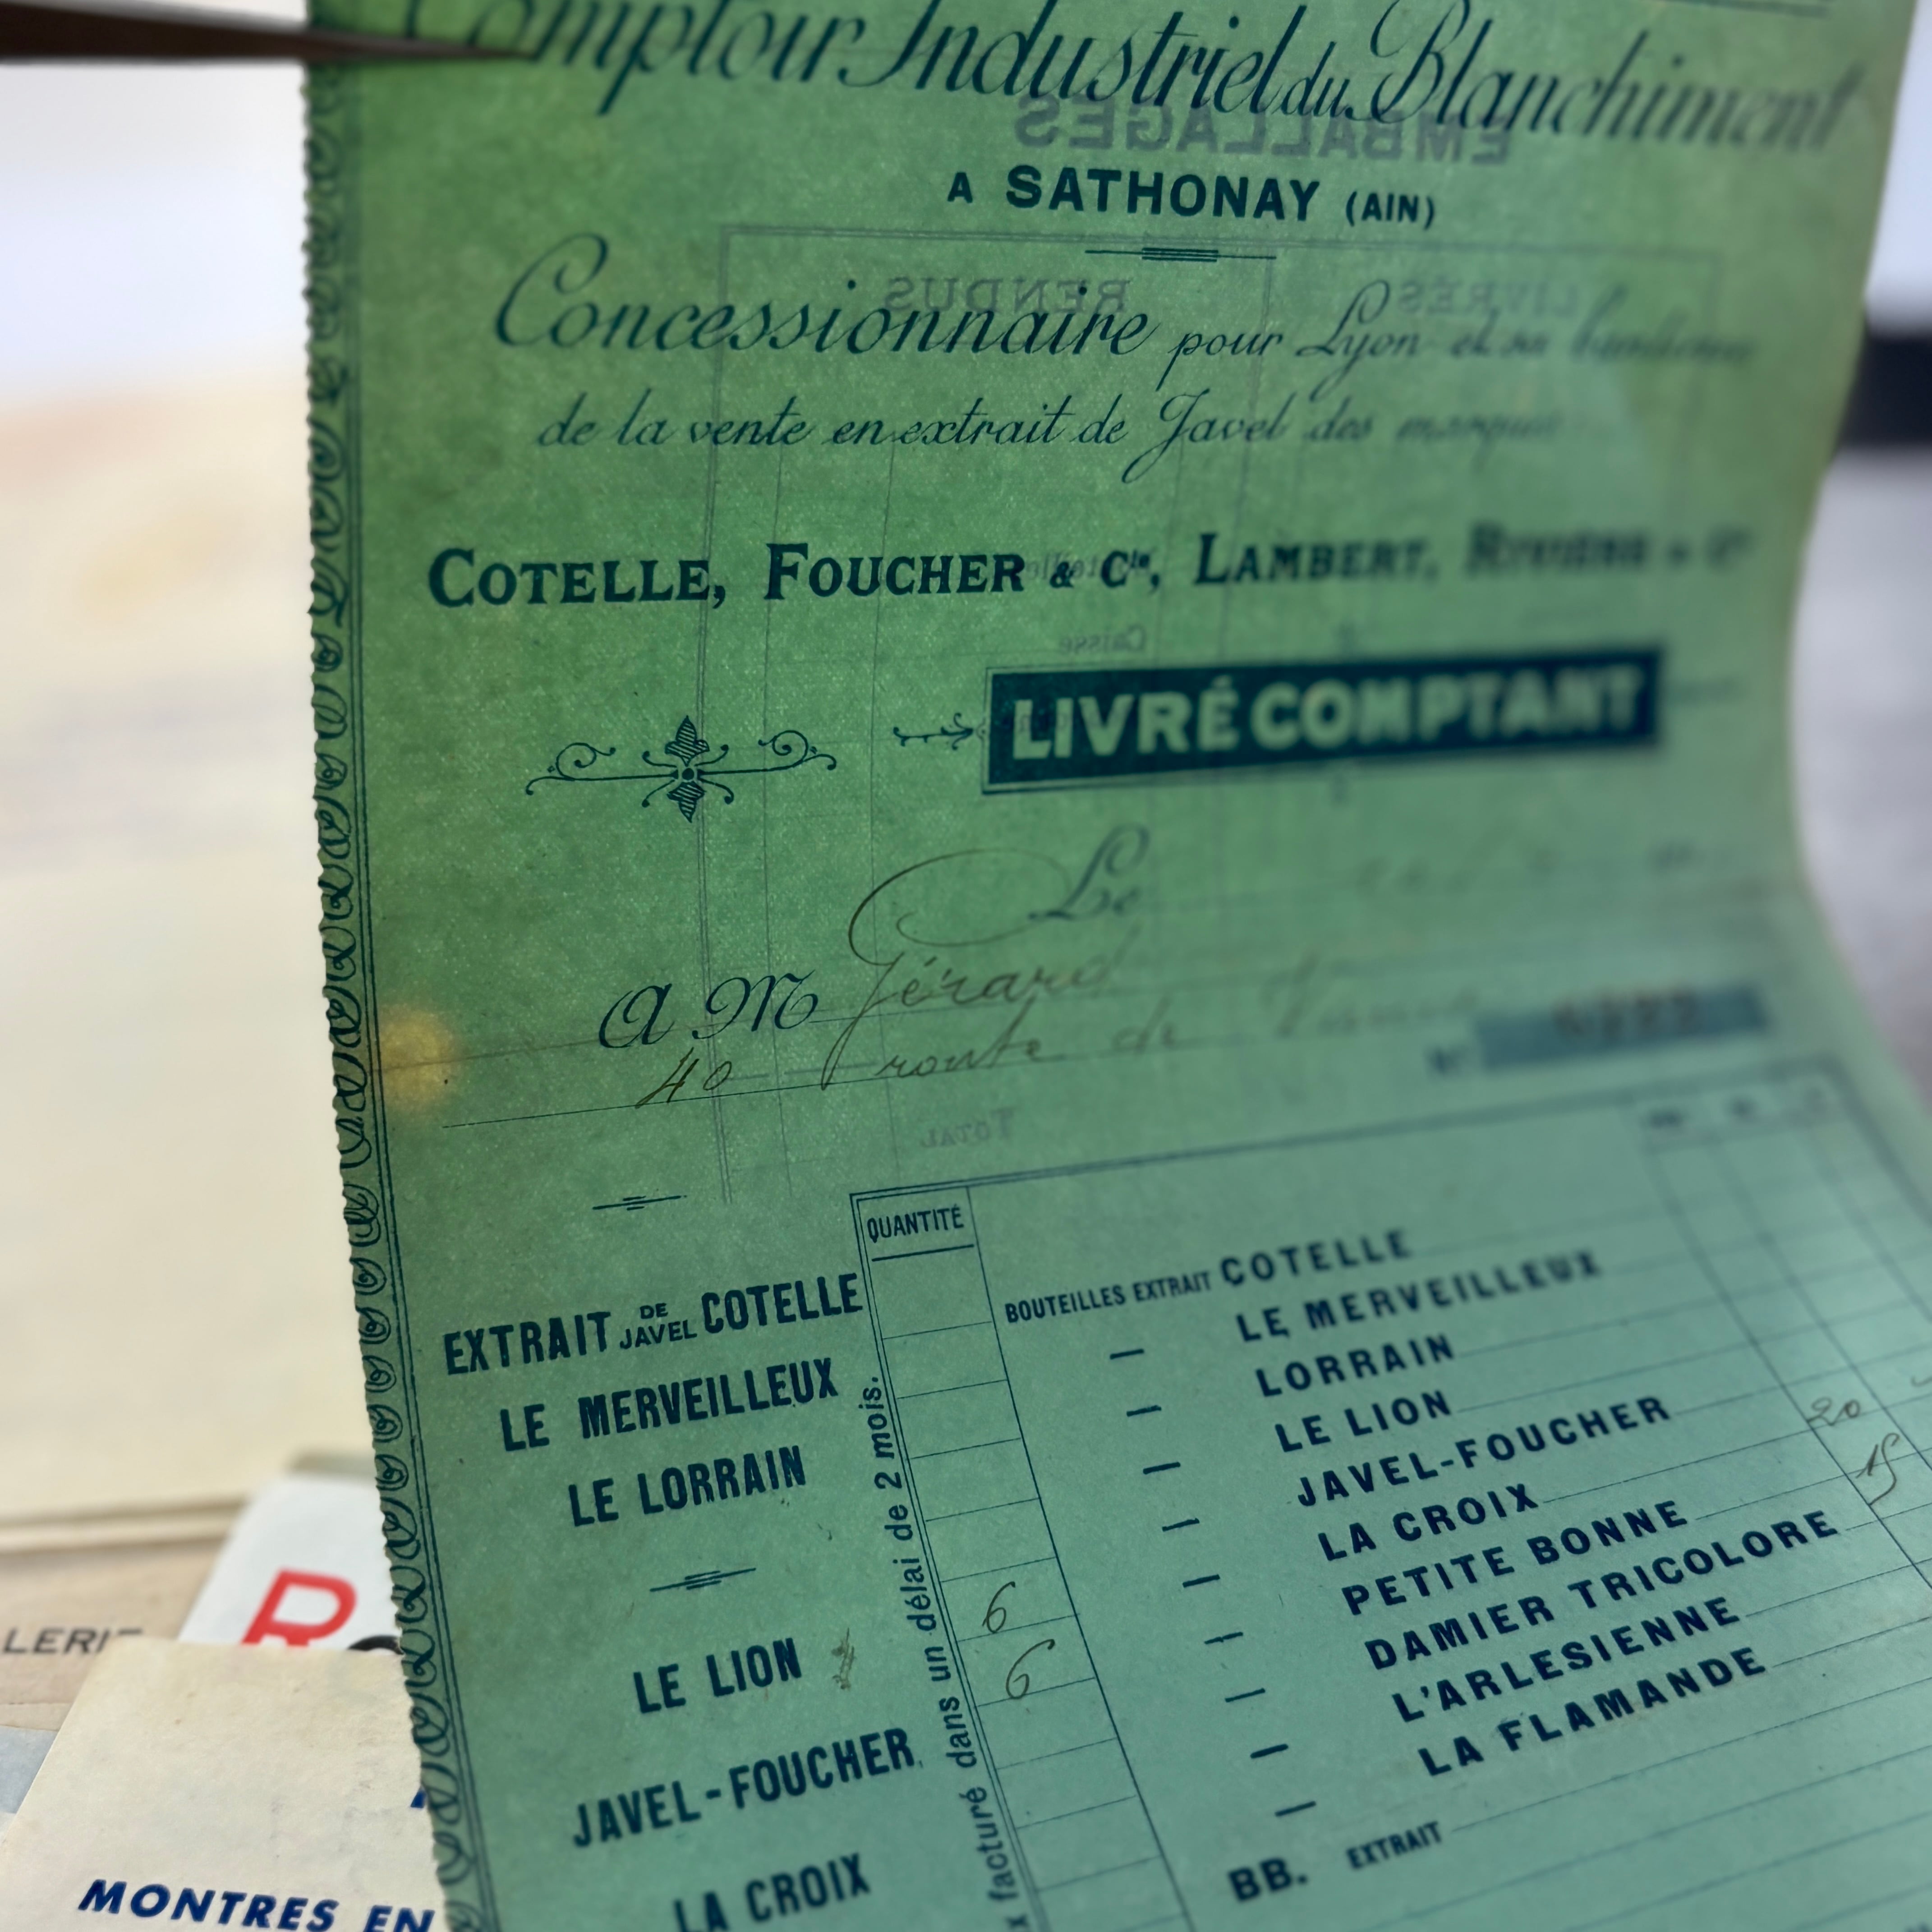 Comptoir Industriel du Blanchiment
EMBALLAGES
A SATHONAY (AIN)
RENDUS LIVRÉS
Concessionnaire pour Lyon et sa banlieue
de la vente en extrait de Javel des marques
COTELLE, FOUCHER & Cie, LAMBERT, RIVIÈRE & Cie
Caisse
LIVRÉ COMPTANT
Le
A M Gérard
40 route de
N°
TOTAL
QUANTITÉ
EXTRAIT DE JAVEL COTELLE
LE MERVEILLEUX
LE LORRAIN
LE LION
JAVEL-FOUCHER
LA CROIX
x facturé dans un délai de 2 mois.
BOUTEILLES EXTRAIT COTELLE
— LE MERVEILLEUX
— LORRAIN
— LE LION
— JAVEL-FOUCHER
6 — LA CROIX 20
6 — PETITE BONNE 15
— DAMIER TRICOLORE
— L'ARLESIENNE
— LA FLAMANDE
BB. EXTRAIT
LERIE
R
MONTRES EN